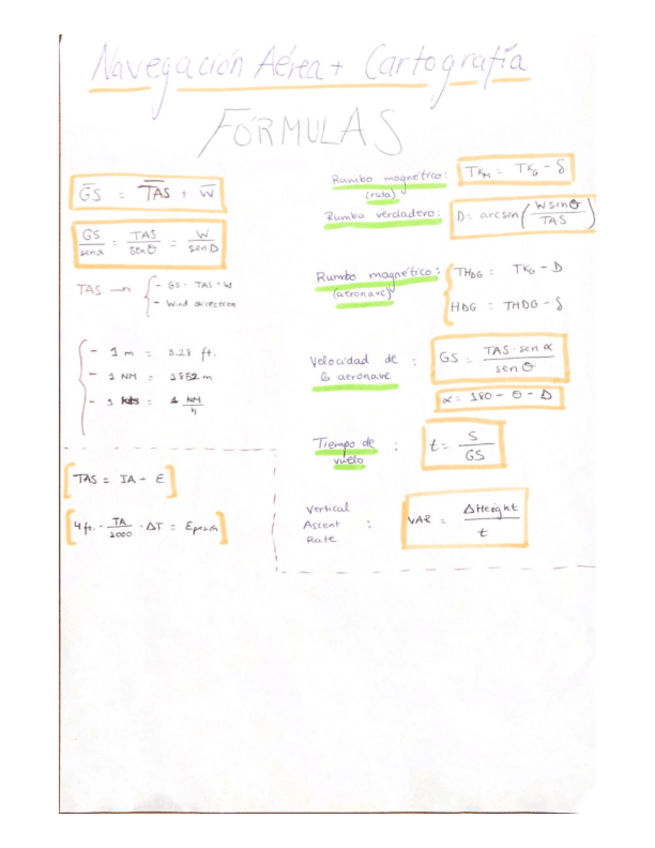 Navegación Aérea + Cartografía
FÓRMULAS
GS = TAS + W
GS/senα = TAS/senθ = W/senD
TAS → { - GS = TAS + W
- Wind direction
- 1 m = 3.28 ft.
- 1 NM = 1852 m
- 1 kts = 1 NM/h
TAS = IA + E
4 ft. · TA/1000 · ΔT =
Rumbo magnético: TKM = TKG - δ
(ruta)
Rumbo verdadero: D = arcsen(W senθ/TAS)
Rumbo magnético: THDG = TKG - D
(aeronave) HDG = THDG - δ
Velocidad de
la aeronave : GS = TAS · sen α/sen θ
α = 180 - θ - D
Tiempo de
vuelo : t = S/GS
Vertical
Ascent : VAR = ΔHeight/t
Rate